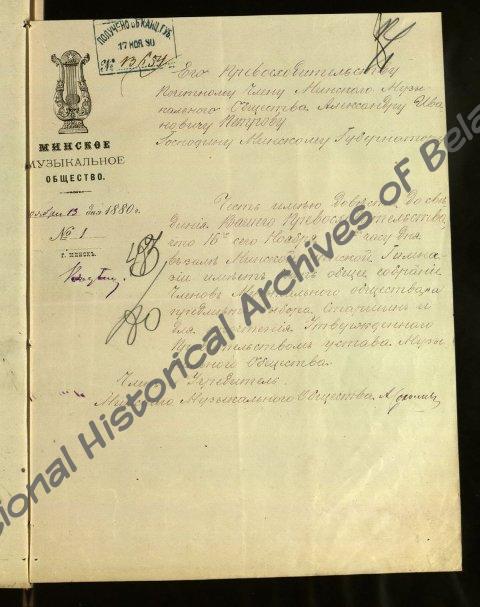 ПОЛУЧЕНО ВЪ КАНЦ. ГУБ.
17 НОЯ 80
№
Его Превосходительству
Почетному Члену Минскаго Музы-
кальнаго Общества Александру Ива
новичу Петрову
Господину Минскому Губернатору
МИНСКОЕ
МУЗЫКАЛЬНОЕ
ОБЩЕСТВО.
Ноября 13 дня 1880 г.
№ 1
Г. МИНСКЪ.
Честь имѣю довести до свѣ
дѣнія Вашего Превосходительства,
что 16 сего Ноября часу дня
въ залѣ Минской Гимна
зіи имѣетъ общее собраніе
Членовъ Музыкальнаго общества на
предметъ выбора Старшинъ и
для чтенія Утвержденнаго
Правительствомъ устава Музы
кальнаго Общества.
Членъ Учредитель
Минскаго Музыкальнаго Общества
National Historical Archives of Bela